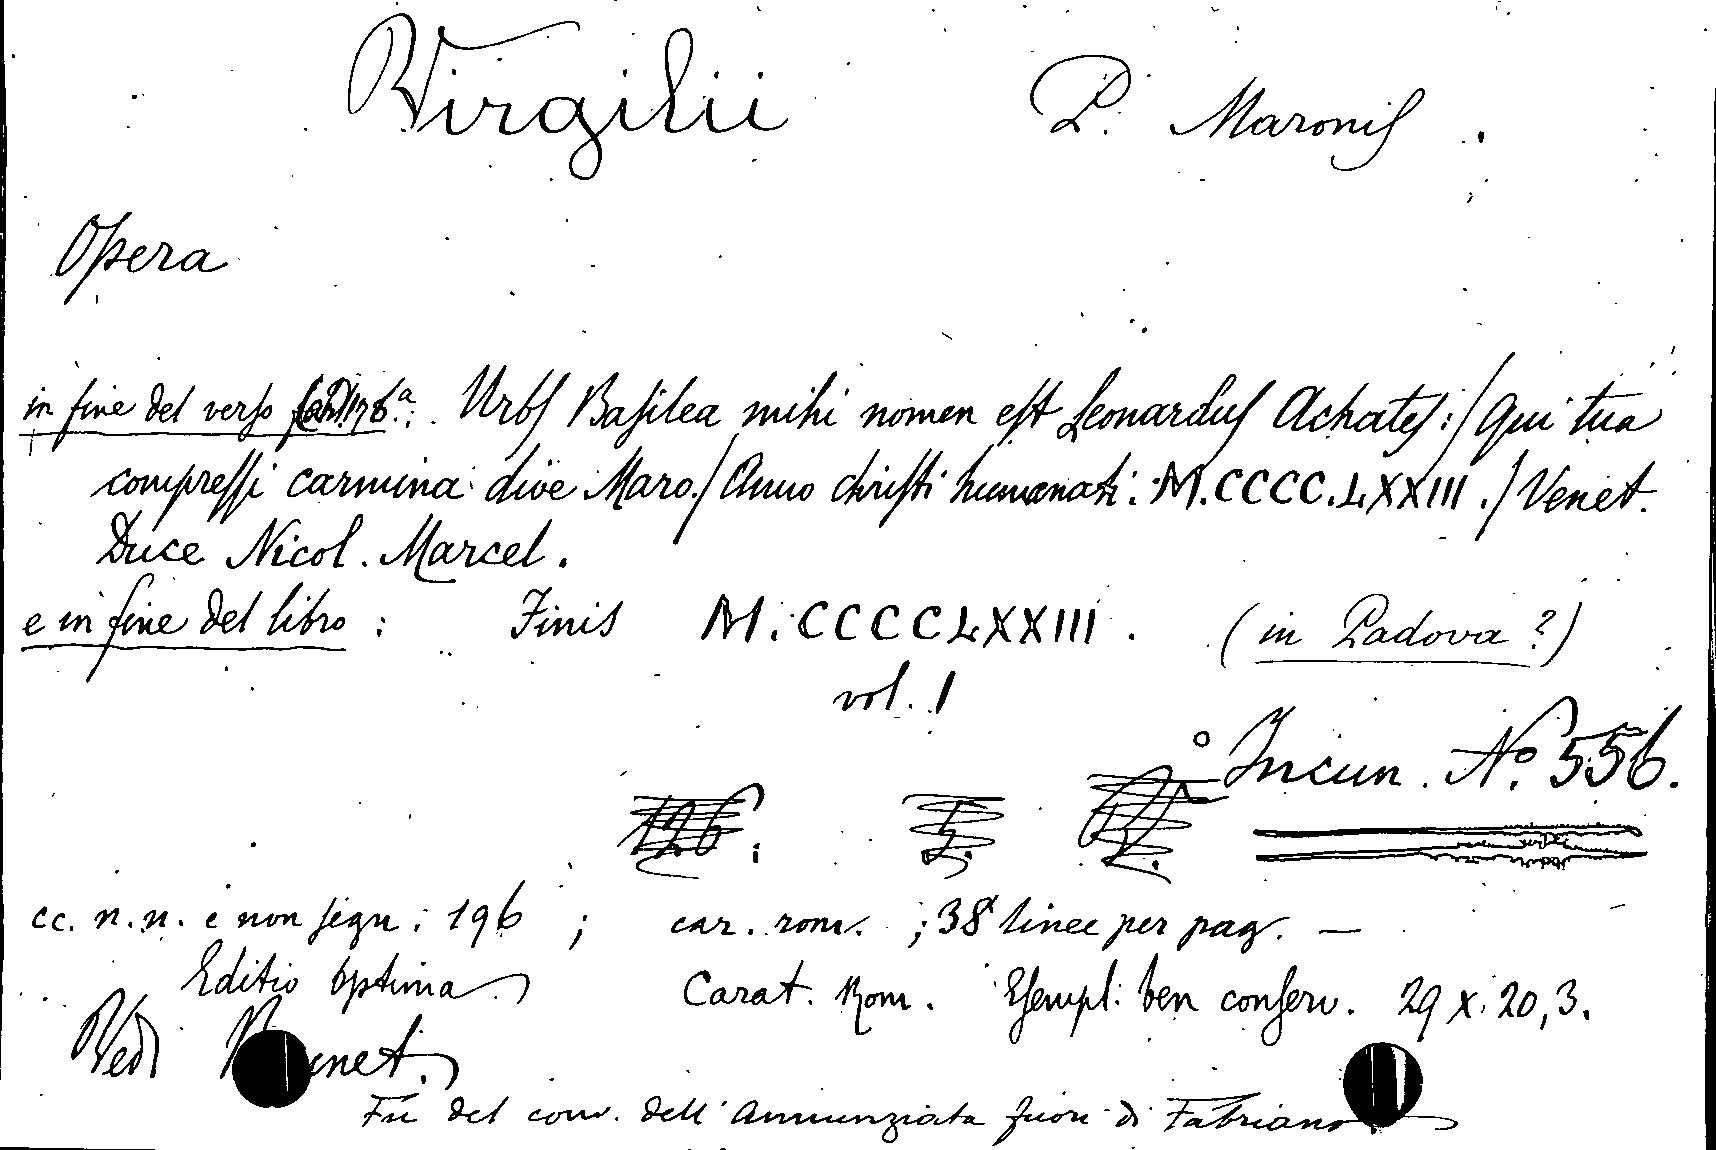 Virgilii P. Maronis.
Opera
in fine del verso 196ª: Urbs Basilea mihi nomen est Leonardus Achates:/Qui tua
compressi carmina dive Maro./Anno christi humanati: M.CCCC.LXXIII./Venet.
Duce Nicol. Marcel.
e in fine del libro: Finis M.CCCCLXXIII. (in Padova?)
vol. 1
Incun. Nº. 556.
126. 5.
cc. n.n. e non segn: 196; car. rom.; 38 linee per pag. —
Editio optima. Carat. Rom. Esempl: ben conserv. 29 x 20,3.
Vedi
Fu del conv. dell'Annunziata fuori di Fabriano.